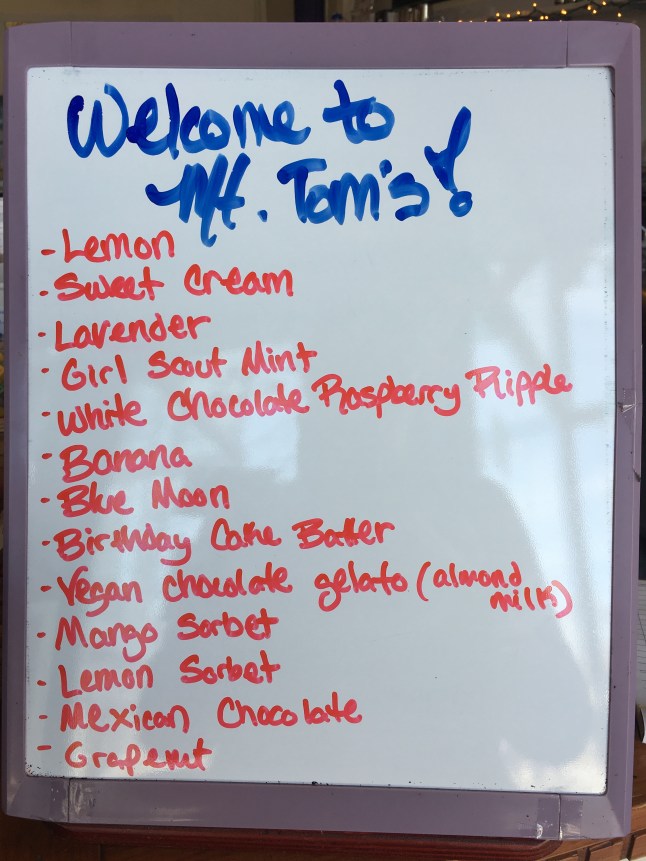 Welcome to
Mt. Tom's!
- Lemon
- Sweet Cream
- Lavender
- Girl Scout Mint
- White Chocolate Raspberry Ripple
- Banana
- Blue Moon
- Birthday Cake Batter
- Vegan chocolate gelato (almond
milk)
- Mango Sorbet
- Lemon Sorbet
- Mexican Chocolate
- Grapenut